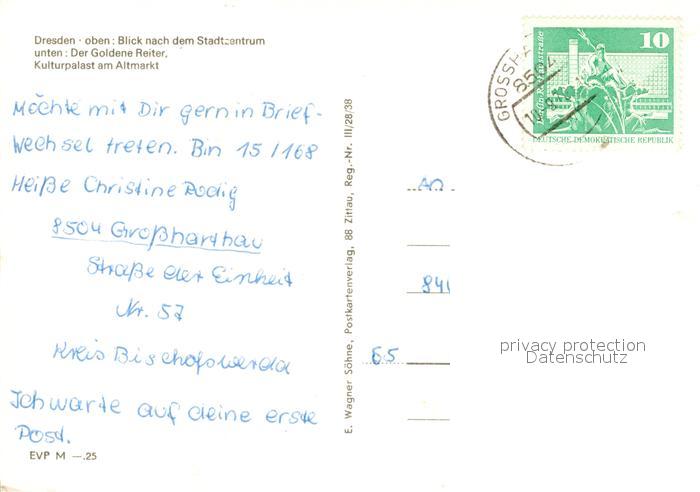 Dresden · oben: Blick nach dem Stadtzentrum
unten: Der Goldene Reiter,
Kulturpalast am Altmarkt
Möchte mit Dir gern in Brief-
wechsel treten. Bin 15 / 168
Heiße Christine Rodig
8504 Großharthau
Straße der Einheit
Nr. 57
Kreis Bischofswerda
Ich warte auf deine erste
Post.
EVP M —.25
E. Wagner Söhne, Postkartenverlag, 88 Zittau, Reg.-Nr. III/28/38
GROSSHA
8504
10
DEUTSCHE DEMOKRATISCHE REPUBLIK
An
841
65
privacy protection
Datenschutz